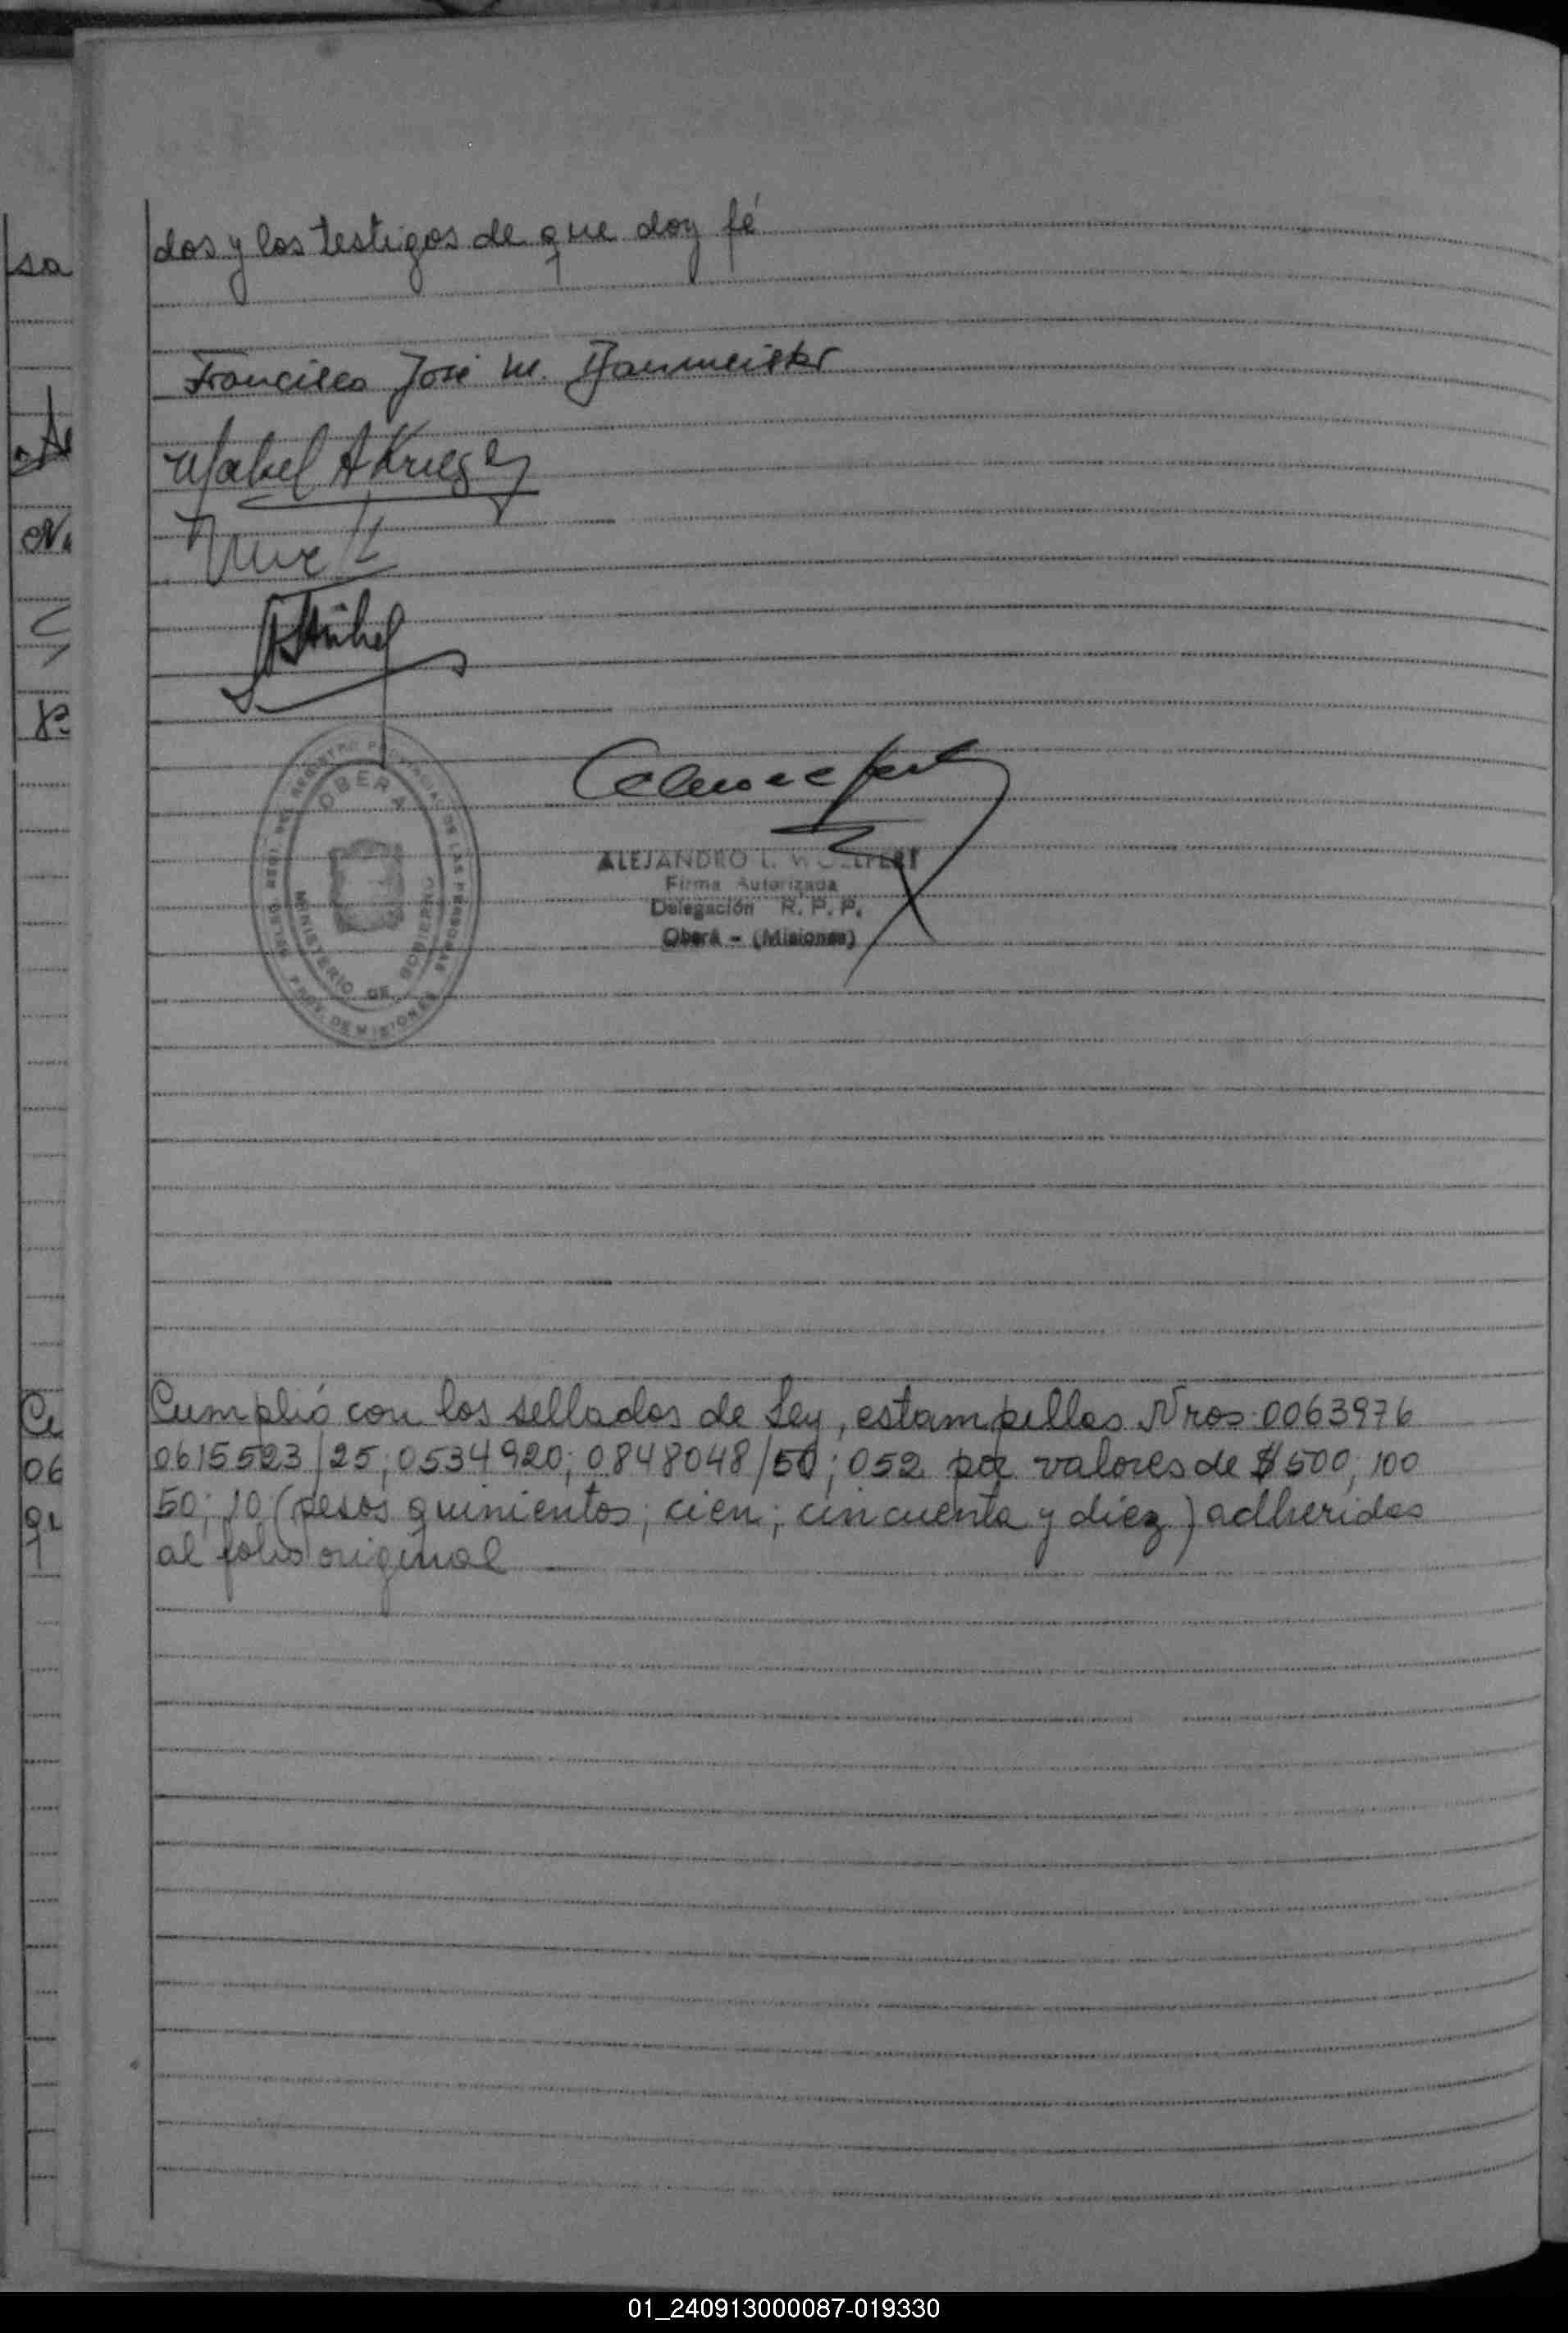 dos y los testigos de que doy fé
Francisco José M. Baumeister
Mabel A Krieger
OBERA
REGISTRO PROVINCIAL DE LAS PERSONAS
MINISTERIO DE GOBIERNO
PROV. DE MISIONES
ALEJANDRO L. W
Firma Autorizada
Delegación R. P. P.
Oberá - (Misiones)
Cumplió con los sellados de Ley, estampillas Nros. 0063976
0615523/25; 0534920; 0848048/50; 052 por valores de $ 500; 100
50; 10 (pesos quinientos; cien; cincuenta y diéz) adheridas
al folio original
sa
Ce
06
01_240913000087-019330